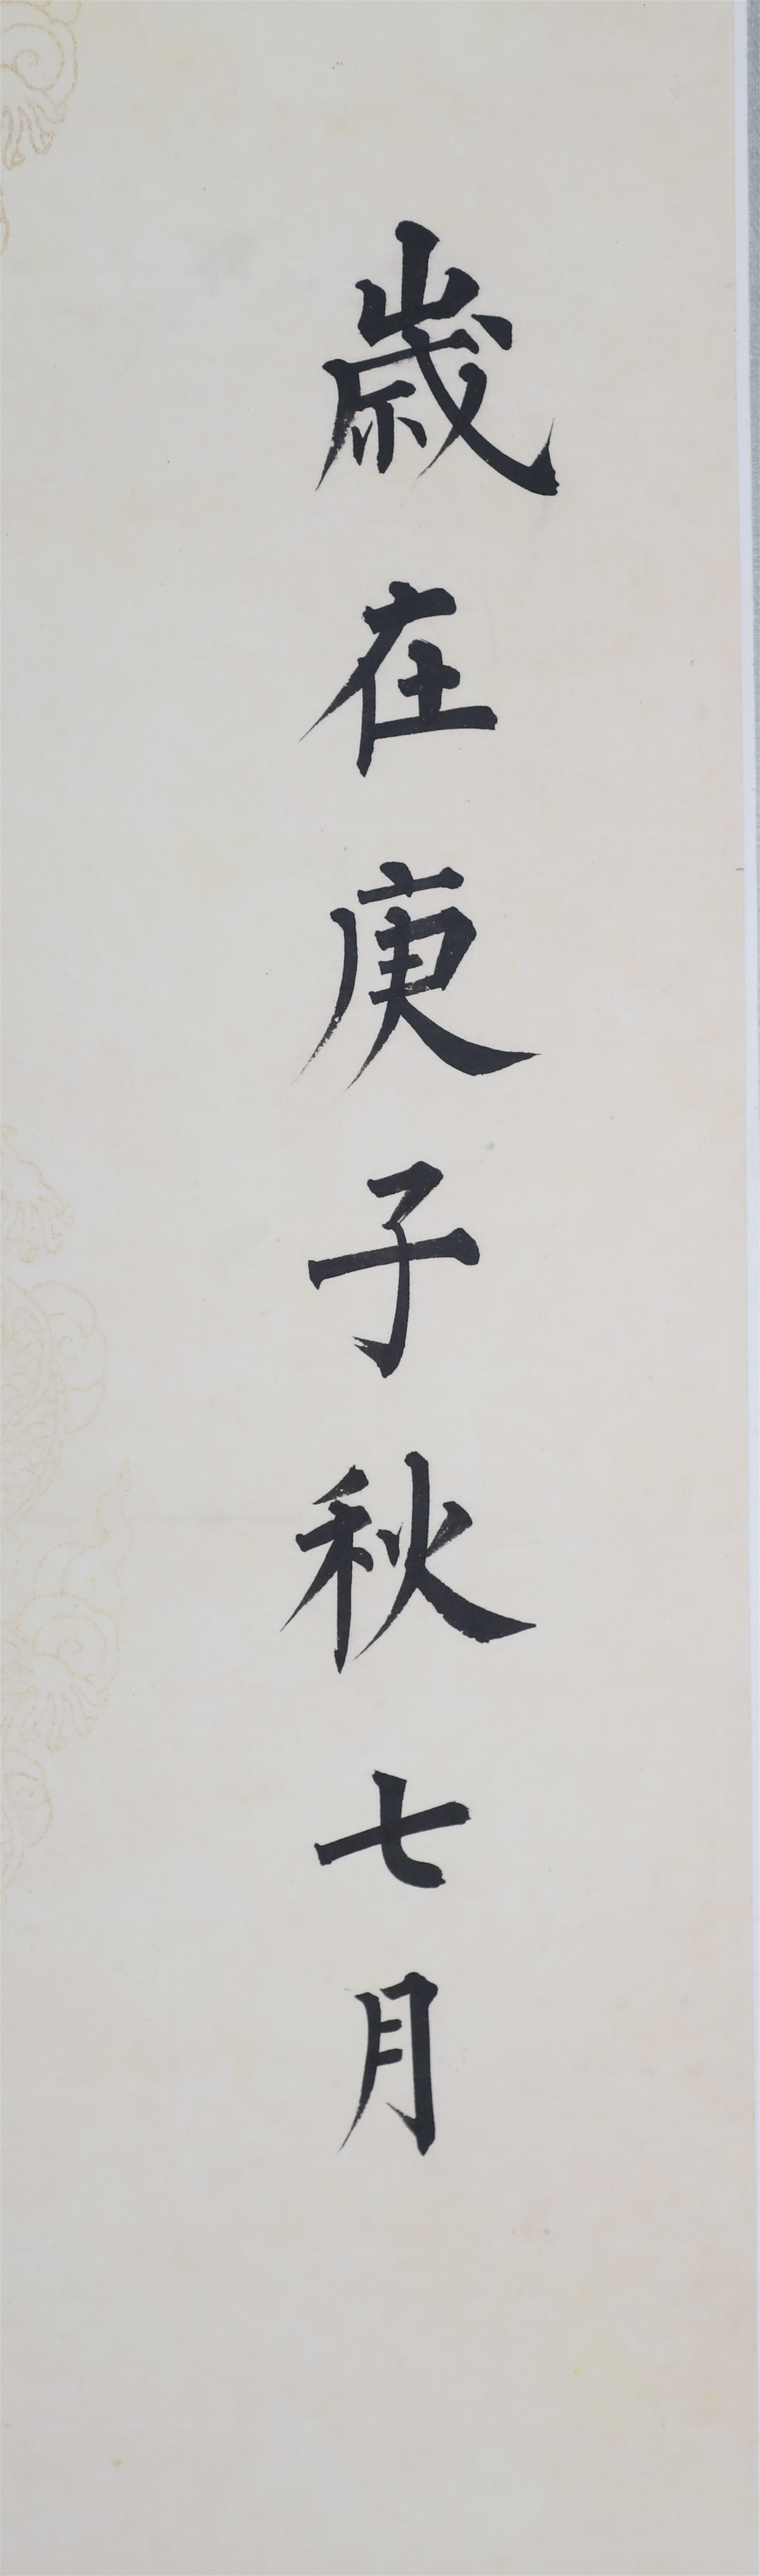 歲在庚子秋七月